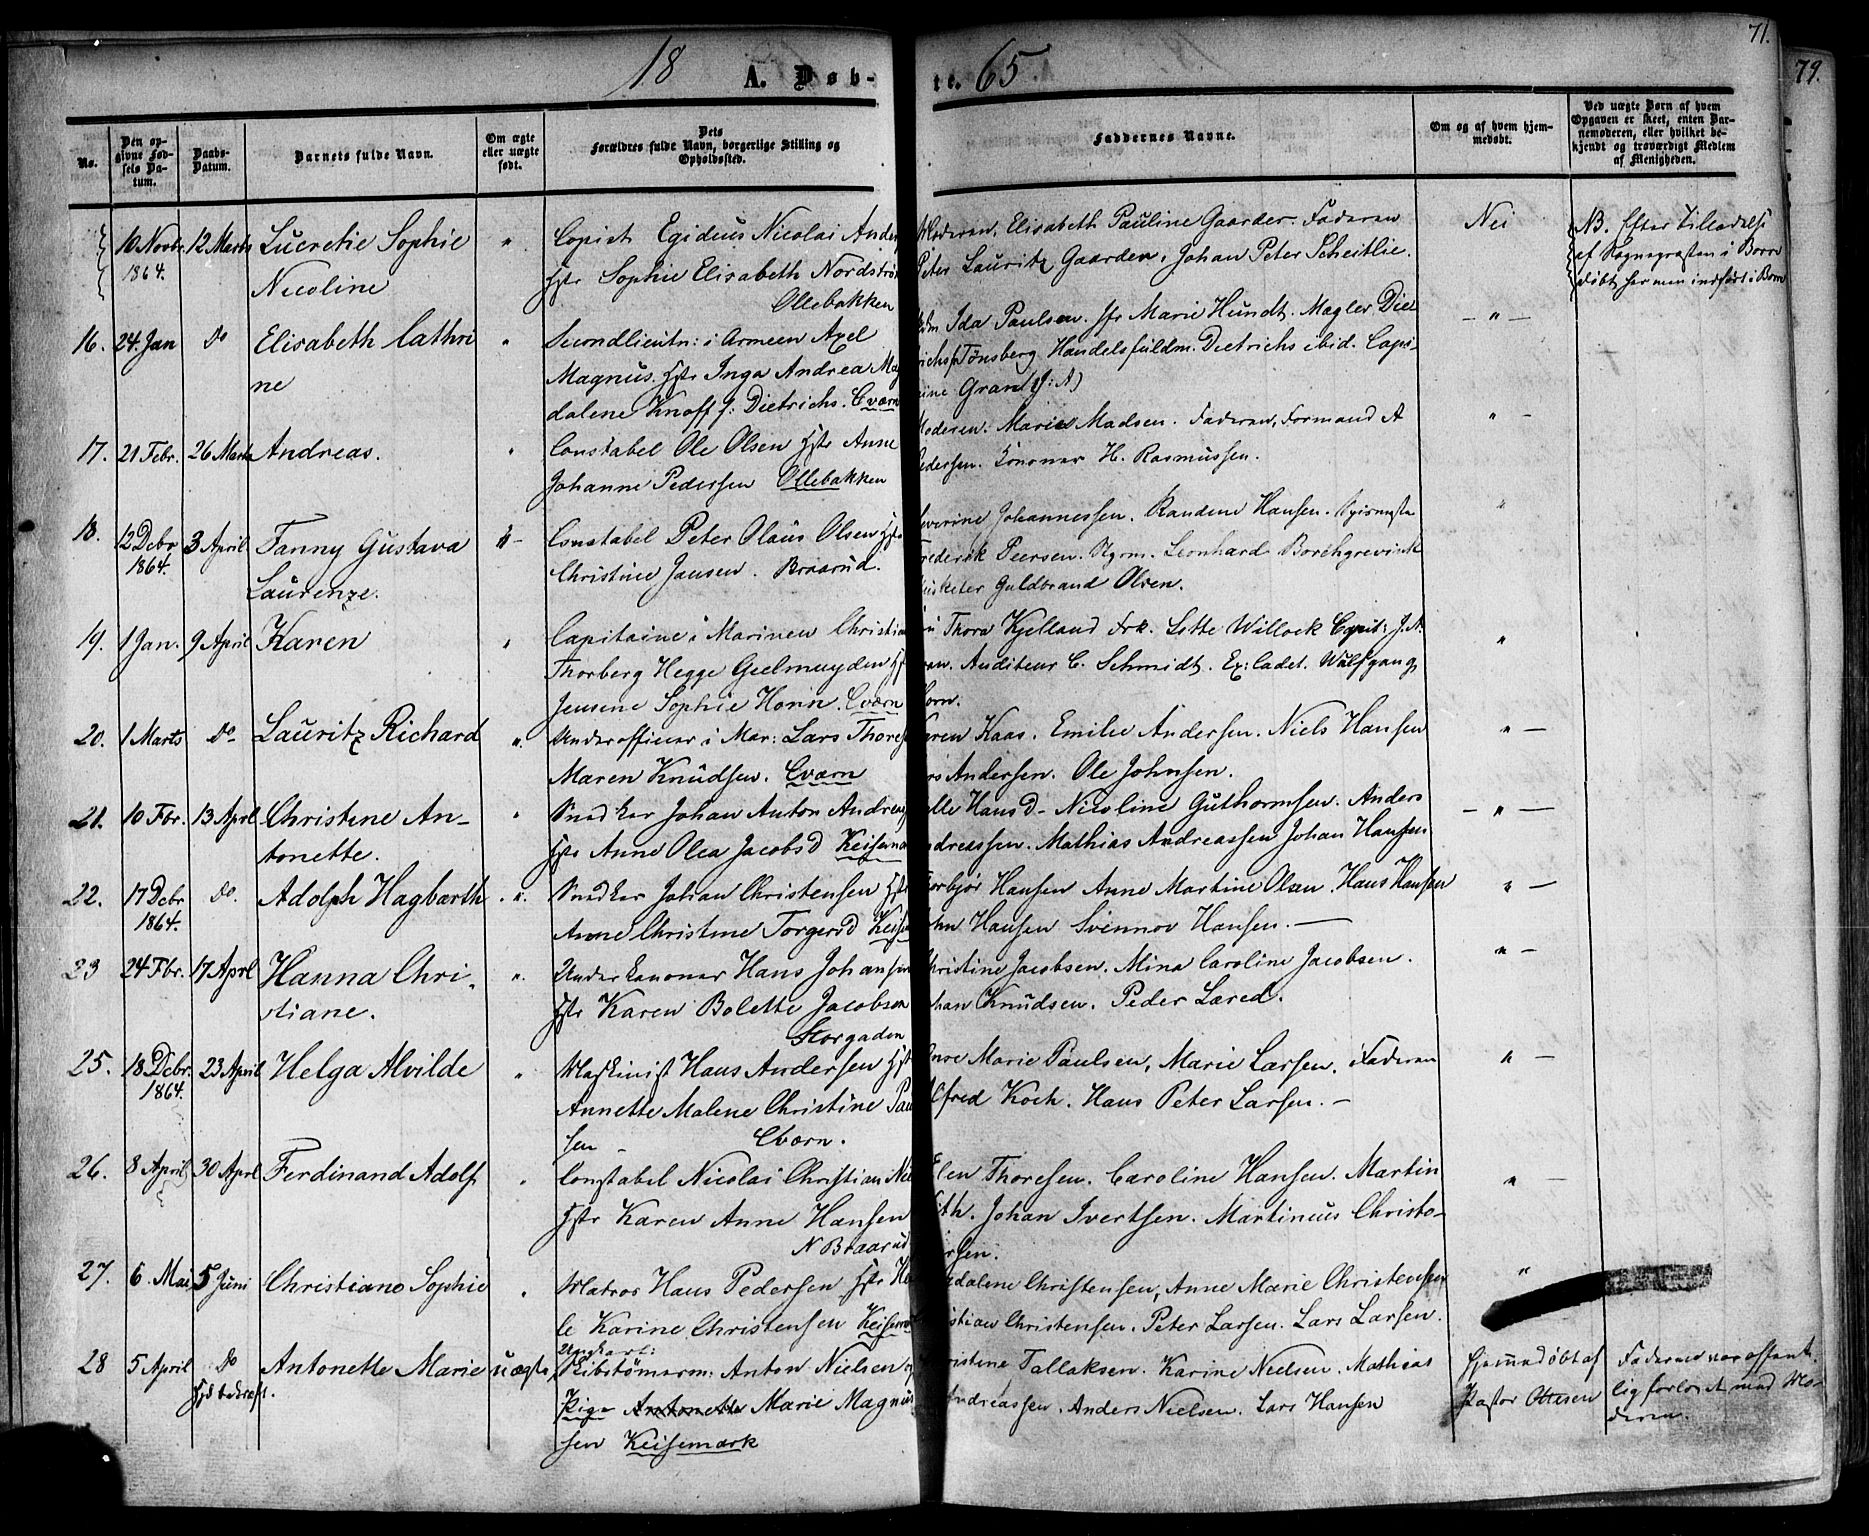 71.
79.
18 A. Døb-
te. 65.
No.
Den op-
givne Fød-
sels Da-
tum.
Daabs-
Datum.
Barnets fulde Navn.
Om ægte
eller uægte
født.
Dets
Forældres fulde Navn, borgerlige Stilling og
Opholdssted.
Faddernes Navne.
Om og af hvem hjem-
medøbt.
Ved uægte Børn af hvem
Opgaven er skeet, enten Bar-
nemoderen, eller hvilket be-
kjendt og troværdigt Medlem
af Menigheden.
10 Novbr 1864. 12 Marts Lucretie Sophie
Nicoline
Copist Egideus Nicolai Ander
Hstr Sophie Elisabeth Nordströ
Ollebakken
Moderen, Elisabeth Pauline Gaarder. Faderen
Peter Lauritz Gaarder, Johan Peter Scheitlie.
Nei
NB. Efter Tilladelse
af Sognepræsten i Borre
døbt her men indført i Borre
16. 24. Jan do Elisabeth Cathri
ne
Secondlieutn: i Armeen Axel
Magnus. Hstr Inga Andrea Mag
dalene Knoff f: Dietrichs. Qværn
Ida Paulsen. Marie Hundt. Mægler Diet
richs Tønsberg Handelsfuldm. Dietrichs ibid. Capi-
teine Gran (J: A)
— " —
17. 21 Febr. 26 Marts Andreas.
Constabel Ole Olsen Hstr Anne
Johanne Pedersen Ollebakken
Moderen. Marie Madsen. Faderen, Formand A
Pedersen. Konomer H. Rasmussen.
" —
18. 12 Debr 1864. 3 April Fanny Gustava
Laurenze.
Constabel Peter Olaus Olsen Hstr
Christine Jansen. Braarud.
Severine Johannessen. Randene Hansen.
Frederik Peersen. Leonhard Borchgrevink
Musketer Guldbrand Olsen.
"
19. 1 Jan. 9 April Karen
Capitaine i Marinen Christian
Thorberg Hegge Geelmuyden H
Jensene Sophie Horn. Qværn
Thora Kjelland Frk. Lotte Willock Capit: J. A.
Gran. Auditeur C. Schmidt. Ex: Cadet. Wulfgang
Horn.
"
20. 1 Marts do Lauritz Richard
Underofficer i Mar: Lars Thores
Maren Knudsen. Qværn
Karen Kaas. Emilie Andersen. Niels Hansen
Andersen. Ole Johnsen.
" —
21. 10 Fbr. 13 Aprl Christine An-
tonette.
Snedker Johan Anton Andreas
Hstr Anne Olea Jacobsd Keisema
Hansd — Nicoline Guthormsen. Anders
Andreassen. Mathias Andreassen Johan Hansen
— " —
22. 17 Debr 1864. do. Adolph Hagbarth
Snedker Johan Christensen Hstr
Anne Christine Torgersd Keise
Thorbjør Hansen Anne Martine Olsen. Hans Hansen
John Hansen Svennov Hansen. —
" —
23 24 Fbr. 17 Aprl Hanna Chri-
stiane.
Underkanoner Hans Johansen
Hstr Karen Bolette Jacobsen
Storgaden
Christine Jacobsen. Mina Caroline Jacobsen.
Johan Knudsen. Peder Læred.
" —
25. 18 Debr. 1864. 23 April Helga Alvilde
Maskinist Hans Andersen Hstr
Annette Malene Christine Paul
sen — Qværn.
Marie Paulsen, Marie Larsen. Faderen
Alfred Koch. Hans Peter Larsen. —
" —
26. 8 April 30 Aprl Ferdinand Adolf
Constabel Nicolai Christian Nie
Hstr Karen Anne Hansen
N Braarud
Elen Thoresen. Caroline Hansen. Martin
Johan Ivertsen. Martinius Christo-
fersen.
" —
27. 6. Mai 5 Juni Christiane Sophie
Matros Hans Pedersen Hstr Ha
le Karine Christensen Keisem
Magdalene Christensen, Anne Marie Christensen
Kristian Christensen. Peter Larsen. Lars Larsen.
"
28 5 April do Antonette Marie uægte
Hjd bekræft.
Ungkarl:
Skibstømmerm: Anton Nielsen og
Pige Antonette Marie Magnus
sen Keisemark
Christine Tallaksen. Karine Nielsen. Mathias
Andreassen. Anders Nielsen. Lars Hansen
Hjemmedøbt af
Pastor Ottesen
Faderen var offent-
lig forlovet med Mo-
deren.